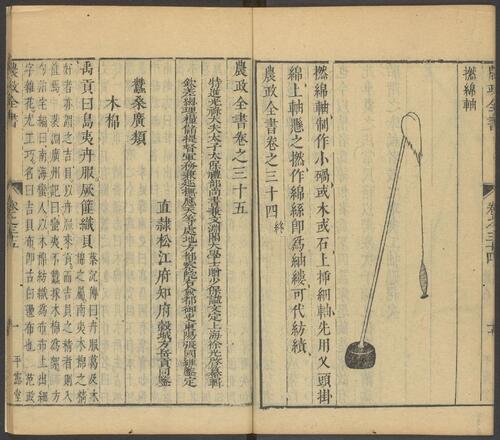 農政全書
卷之三十四
撚綿軸
撚綿軸制作小碢或木或石上揷細軸先用叉頭掛
綿上軸懸之撚作綿絲即爲紬縷可代紡績
農政全書卷之三十四 終
農政全書卷之三十五
特進光祿大夫太子太保禮部尚書兼文淵閣大學士贈少保諡文定上海徐光啓纂輯
欽差總理糧儲提督軍務兼巡撫應天等處地方都察院右僉都御史東陽張國維鑒定
直隸松江府知府穀城方岳貢同鑒
蠶桑廣類
木棉
禹貢曰島夷卉服厥篚織貝
蔡沉傳曰卉服葛及木
綿之屬南夷木綿之精
好者亦謂之吉貝以卉服來貢而吉貝之精者則入
農政全書
卷之三十五
平露堂